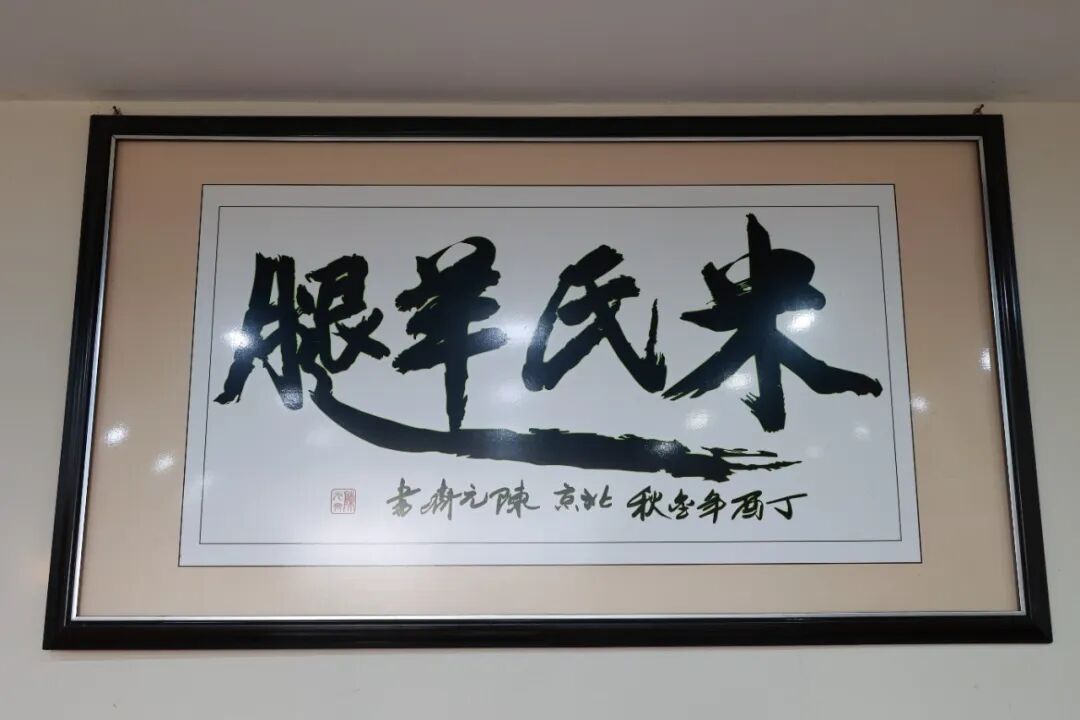 米氏羊腿
丁酉年金秋 北京 陳元齋書